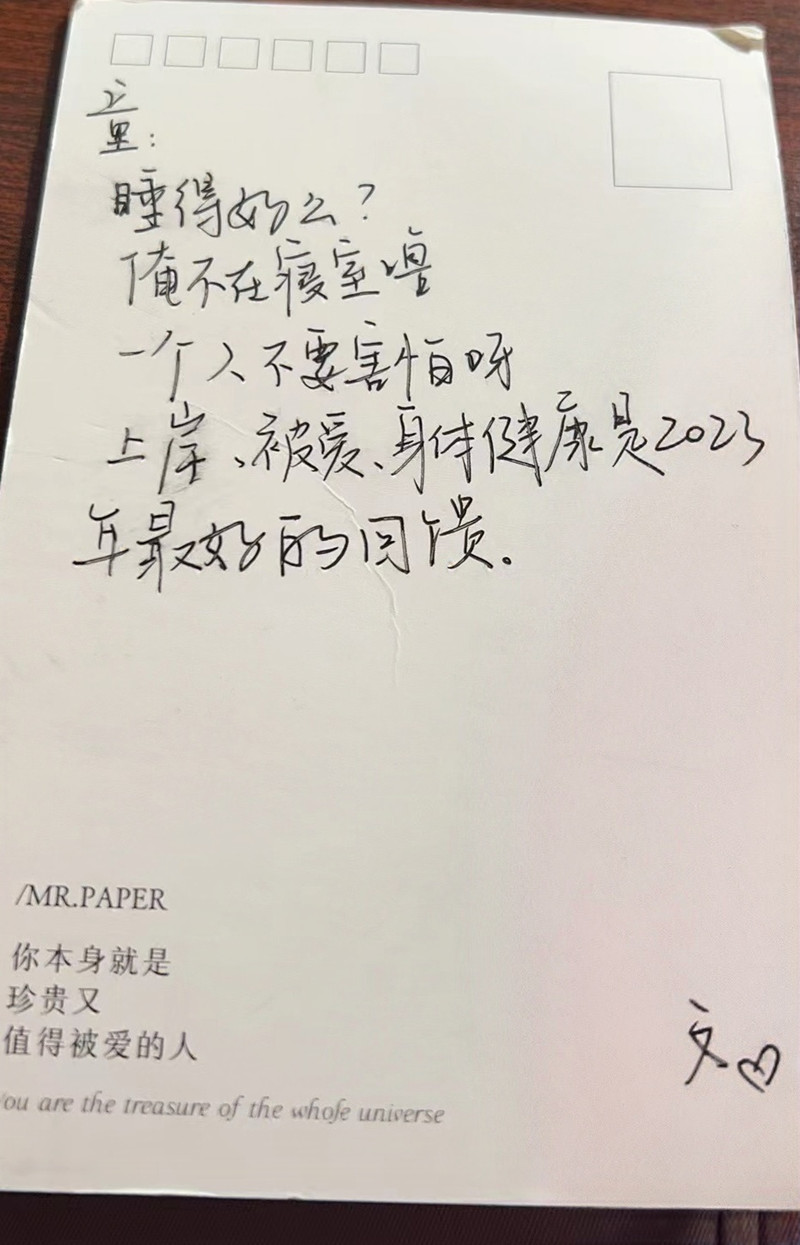 童:
睡得好么?
俺不在寝室噜
一个人不要害怕呀
上岸、被爱、身体健康是2023
年最好的回馈。
/MR.PAPER
你本身就是
珍贵又
值得被爱的人
You are the treasure of the whole universe
文♡